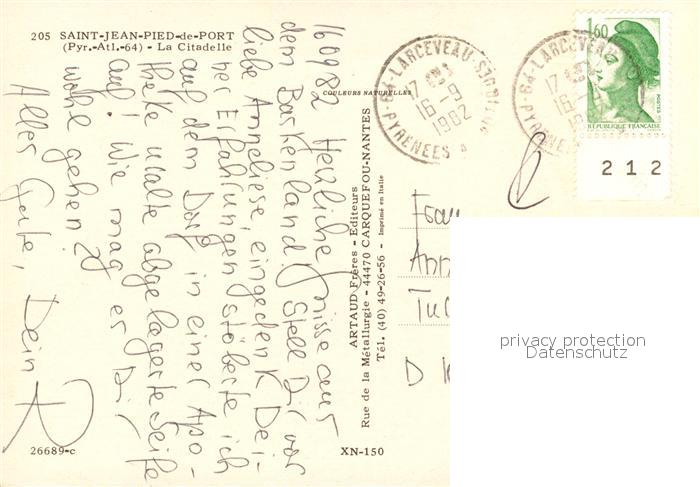 205 SAINT-JEAN-PIED-de-PORT
(Pyr.-Atl.-64) - La Citadelle
160982 Herzliche Grüsse aus
dem Baskenland! Stell Dir vor
liebe Anneliese, eingedenk Dei-
ner Erfahrungen stöberte ich
auf dem Dorf in einer Apo-
theke uralte abgelagerte Seife
auf! Wie mag es Dir
wohl gehen?
Alles Gute, Dein R
COULEURS NATURELLES
ARTAUD Frères - Editeurs
Rue de la Métallurgie - 44470 CARQUEFOU-NANTES
Tél. (40) 49-26-56 - Imprimé en Italie
26689-c
XN-150
64-LARCEVEAU
17 H
16-9
1982
PYRENEES A
64-LARCEVEAU
17
16
1,60
POSTES
REPUBLIQUE FRANÇAISE
212
Frau
Ann
Tu
D
privacy protection
Datenschutz